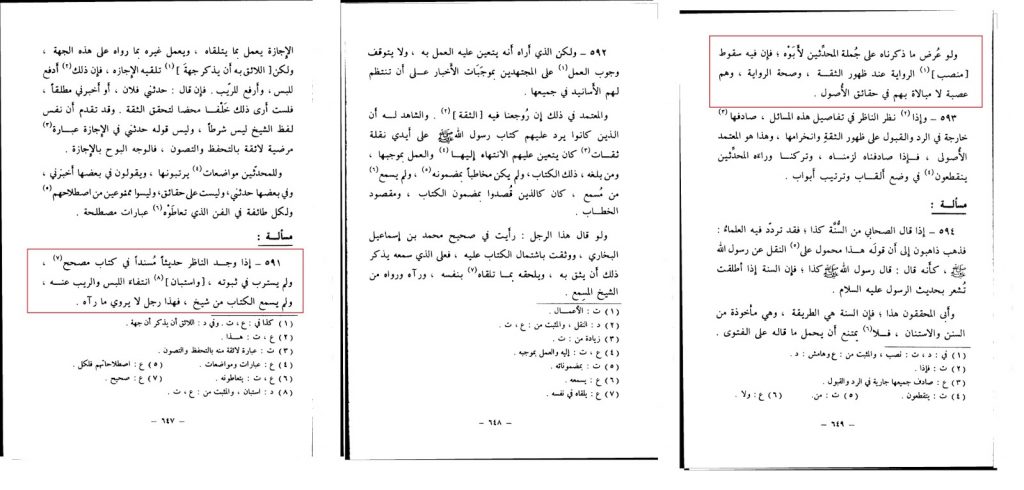 الإجازة يعمل بما يتلقاه ، ويعمل غيره بما رواه على هذه الجهة ،
ولكن [ اللائق به أن يذكر جهة ] (١) تلقيه الإجازة ، فإن ذلك (٢) أدفع
للبس ، وأرفع للريب . فإن قال : حدثني فلان ، أو أخبرني مطلقاً ،
فلست أرى ذلك خلفا محضا لتحقق الثقة . وقد تقدم أن نفس
لفظ الشيخ ليس شرطاً ، وليس قوله حدثني في الإجازة عبارة (٣)
مرضية لائقة بالتحفظ والتصون ، فالوجه البوح بالإجازة .
وللمحدثين مواضعات (٤) يرتبونها ، ويقولون في بعضها أخبرني ،
وفي بعضها حدثني ، وليست على حقائق ، وليسوا ممنوعين من اصطلاحهم (٥)
ولكل طائفة في الفن الذي تعاطوه (٦) عبارات مصطلحة .
مسألة :
٥٩١ – إذا وجد الناظر حديثاً مُسنداً في كتاب مصحح (٧) ،
ولم يسترب في ثبوته ، [واستبان] (٨) انتفاء اللبس والريب عنه ،
ولم يسمع الكتاب من شيخ ، فهذا رجل لا يروي ما رآه .
(١) كذا في : ع ، ت . وفي د : اللائق أن يذكر أن جهة .
(٢) ع ، ت : هذا .
(٣) ت : عبارة لائقة منه بالتحفظ والتصون .
(٤) ع : عبارات ومواضعات . (٥) ع : اصطلاحاتهم فلكل .
(٦) ع ، ت : يتعاطونه . (٧) ع : صحيح .
(٨) د : استبان ، والمثبت من : ع ، ت .
– ٦٤٧ –
٥٩٢ – ولكن الذي أراه أنه يتعين عليه العمل به ، ولا يتوقف
وجوب العمل (١) على المجتهدين بموجَبات الأخبار على أن تنتظم
لهم الأسانيد في جميعها .
والمعتمد في ذلك إن رُوجعنا فيه [الثقة] (٢) . والشاهد له أن
الذين كانوا يرد عليهم كتاب رسول الله ﷺ على أيدي نقلة
ثقات (٣) كان يتعين عليهم الانتهاء إليها (٤) والعمل بموجبها ،
ومن بلغه ، ذلك الكتاب ، ولم يكن مخاطباً بمضمونه (٥) ، ولم يسمع (٦)
من مُسمع ، كان كالذين قُصدوا بمضمون الكتاب ، ومقصود
الخطاب .
ولو قال هذا الرجل : رأيت في صحيح محمد بن إسماعيل
البخاري ، ووثقت باشتمال الكتاب عليه ، فعلى الذي سمعه يذكر
ذلك أن يثق به ، ويلحقه بما تلقاه (٧) بنفسه ، ورآه ورواه من
الشيخ المسمع .
(١) ت : الأعمال .
(٢) د : النقل ، والمثبت من : ع ، ت .
(٣) زيادة من : ت .
(٤) ع ، ت : إليه والعمل بموجبه .
(٥) ت : بمضموناته .
(٦) ع : يسمعه .
(٧) ع : يلقاه في نفسه .
– ٦٤٨ –
ولو عُرض ما ذكرناه على جُملة المحدّثين لأبَوْه ؛ فإن فيه سقوط
[منصب] (١) الرواية عند ظهور الثقة ، وصحة الرواية ، وهم
عصبة لا مبالاة بهم في حقائق الأصول .
٥٩٣ – وإذا (٢) نظر الناظر في تفاصيل هذه المسائل ، صادفها (٣)
خارجة في الرد والقبول على ظهور الثقة وانخرامها ، وهذا هو المعتمد
الأصولي ، فإذا صادفناه لزمناه ، وتركنا وراءه المحدّثين
ينقطعون (٤) في وضع ألقاب وترتيب أبواب .
مسألة :
٥٩٤ – إذا قال الصحابي من السُّنَّة كذا ؛ فقد تردّد فيه العلماءُ :
فذهب ذاهبون إلى أن قولَه هذا محمول على (٥) النقل عن رسول الله
ﷺ ، كأنه قال : قال رسول الله ﷺ كذا ؛ فإن السنة إذا أطلقت
تُشعر بحديث الرسول عليه السلام .
وأبى المحققون هذا ؛ فإن السنة هي الطريقة ، وهي مأخوذة من
السنن والاستنان ، فلا (٦) يمتنع أن يحمل ما قاله على الفتوى .
(١) في : د ، ت : نصب ، والمثبت من : ع وهامش : د .
(٢) ت : فإذا .
(٣) ع : صادف جميعها جارية في الرد والقبول .
(٤) ت : يتقطعون . (٥) ت : من . (٦) ع : ولا .
– ٦٤٩ –